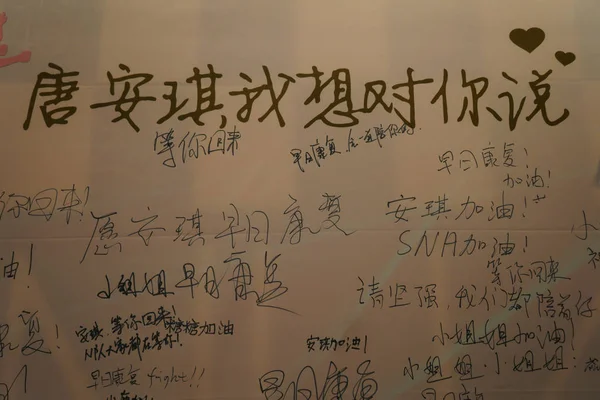 唐安琪我想对你说
等你回来
早日康复 会一直陪你的.
早日康复!
加油!
你回来!
安琪加油!
愿安琪早日康复
SNH加油!
小
油!
等你回来
小姐姐早日康复
请坚强,我们都陪着仔
安琪:等你回来!
加油
小姐姐加油!
安琪加油!
复!
小姐姐.小姐姐:
早日康复 fight!!
早日康复